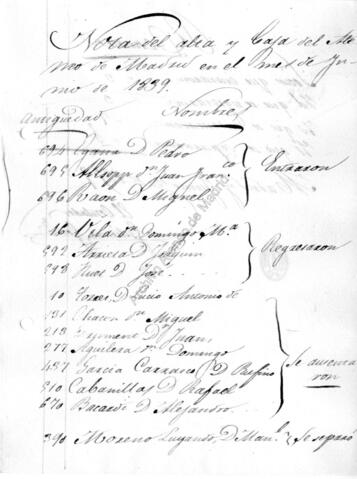 Nota del alta y baja del Ate
neo de Madrid en el mes de Ju
nio de 1839.
Antigüedad Nombres
694 Egaña D. Pedro
695 Allsopp Dn. Juan Franco
696 Baon D. Miguel
Entraron
16 Vila Dn. Domingo Ma.
592 Arrieta D. Joaquin
593 D. José
Regresaron
10 Torres, D. Lucio Antonio de
131 Chacon Dn. Miguel
213 Dn. Juan
277 Aguilera Dn. Domingo
437 Garcia Carrasco D. Rufino
510 Cabanillas D. Rafael
670 Bacardi D. Alejandro
Se ausenta
ron
390 Moreno D. Manl. Se separó